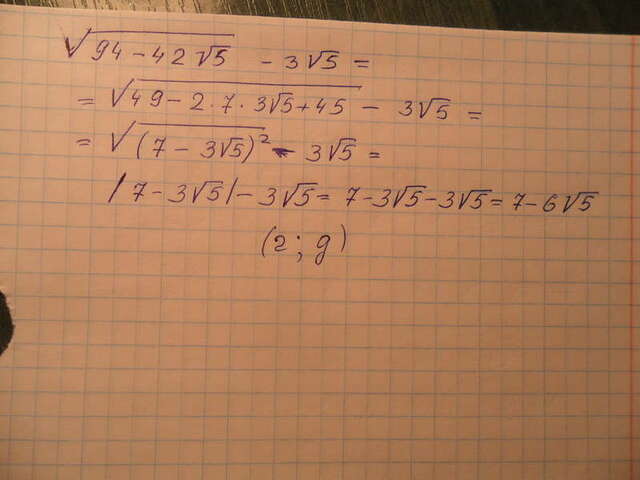 √(94 − 42√5) − 3√5 =
= √(49 − 2·7·3√5 + 45) − 3√5 =
= √((7 − 3√5)²) − 3√5 =
|7 − 3√5| − 3√5 = 7 − 3√5 − 3√5 = 7 − 6√5
(2; g)